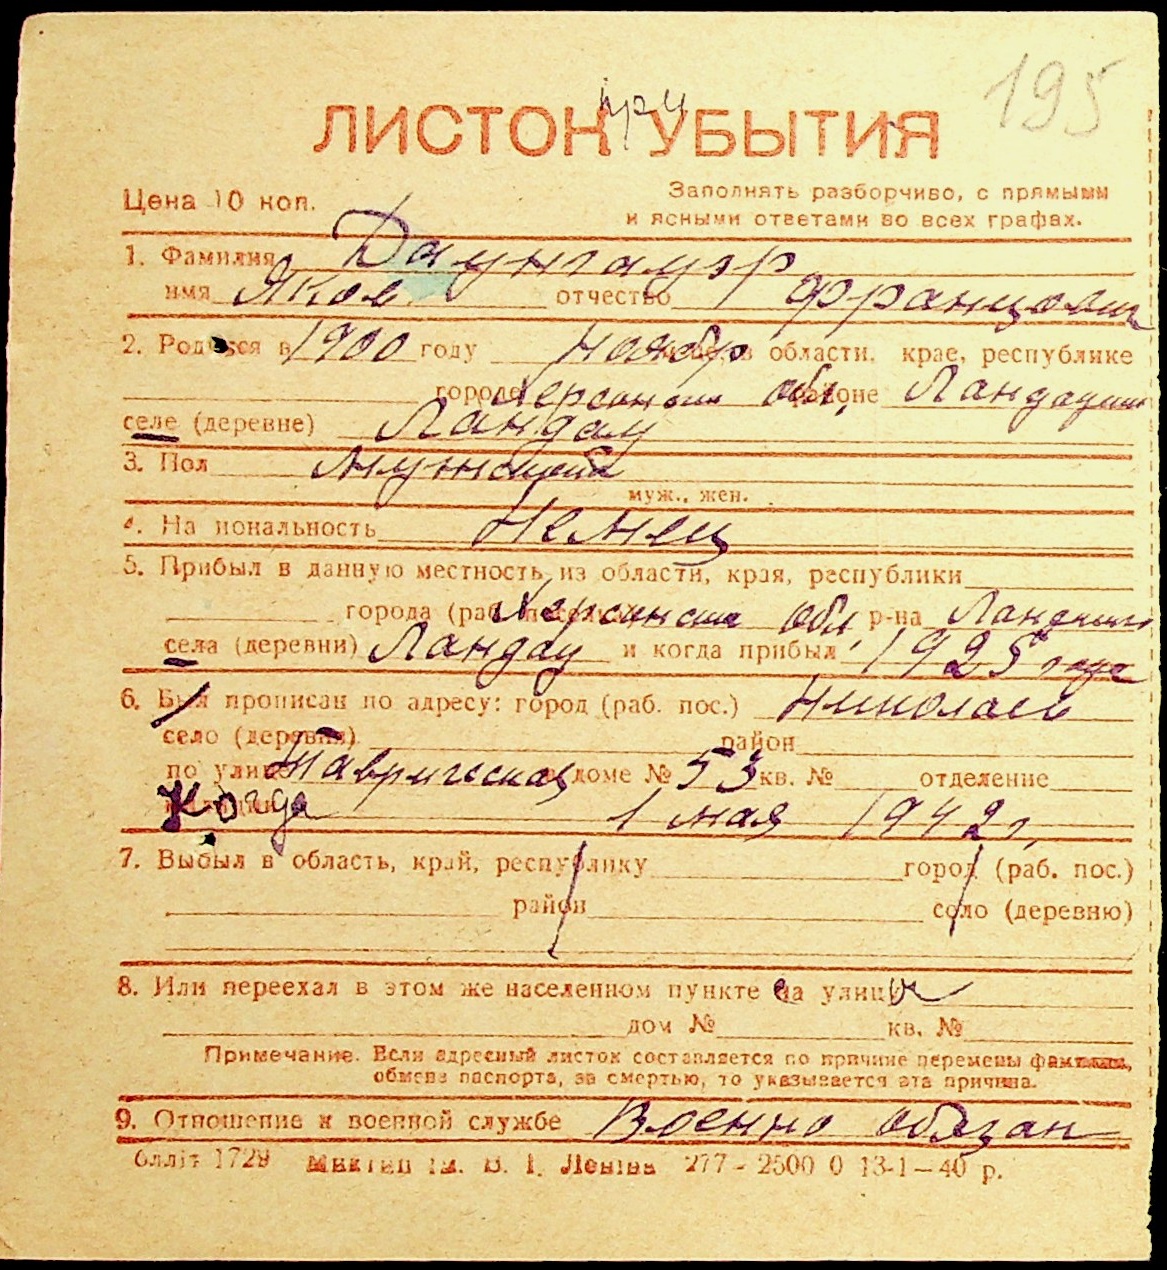 195
при
ЛИСТОК УБЫТИЯ
Цена 10 коп.
Заполнять разборчиво, с прямыми
и ясными ответами во всех графах.
1. Фамилия Даунгауэр
имя Яков отчество Францович
2. Родился в 1900 году Ноябр в области, крае, республике
городе Херсонская обл, районе
селе (деревне) Ландау
3. Пол Мужской
муж., жен.
4. Национальность Немец
5. Прибыл в данную местность из области, края, республики
города (раб. Херсонская обл, р-на
села (деревни) Ландау и когда прибыл 1925 года
6. Был прописан по адресу: город (раб. пос.) Николаев
село (деревня) район
по улице Таврическая доме № 53 кв. № отделение
Когда 1 мая 1942 г,
7. Выбыл в область, край, республику город (раб. пос.)
район село (деревню)
8. Или переехал в этом же населенном пункте на улицу
дом № кв. №
Примечание. Если адресный листок составляется по причине перемены фамилии,
обмена паспорта, за смертью, то указывается эта причина.
9. Отношение к военной службе Военно обязан
блліт 1729 Миктип ім. В. І. Леніна 277 - 2500 0 13-1-40 р.